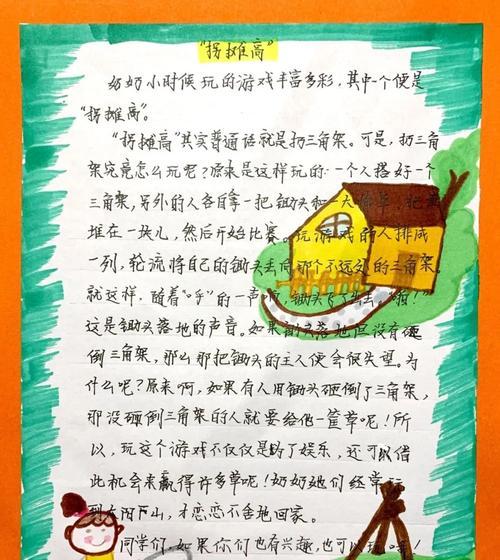 “拐摊高”
奶奶小时候玩的游戏丰富多彩,其中一个便是
“拐摊高”。
“拐摊高”其实普通话就是扔三角架。可是,扔三角
架究竟怎么玩呢?原来是这样玩的:一个人搭好一个
三角架,另外的人各自拿一把锄头和一大
堆在一块儿,然后开始比赛。玩游戏的人排成
一列,轮流将自己的锄头丢向那个不远处的三角架。
就这样,随着“呼”的一声,锄头飞了出去,“啪!”
这是锄头落地的声音。如果锄头落地但没有砸
倒三角架,那么那把锄头的主人便会很失望。为
什么呢?原来啊,如果有人用锄头砸倒了三角架,
那没砸倒三角架的人就要给他一筐草呢!所
以,玩这个游戏不仅仅是为了娱乐,还可以借
此机会来赢得许多草呢!奶奶她们经常玩
到太阳下山,才恋恋不舍地回家。
同学们,如果你们也有兴趣,也可以玩